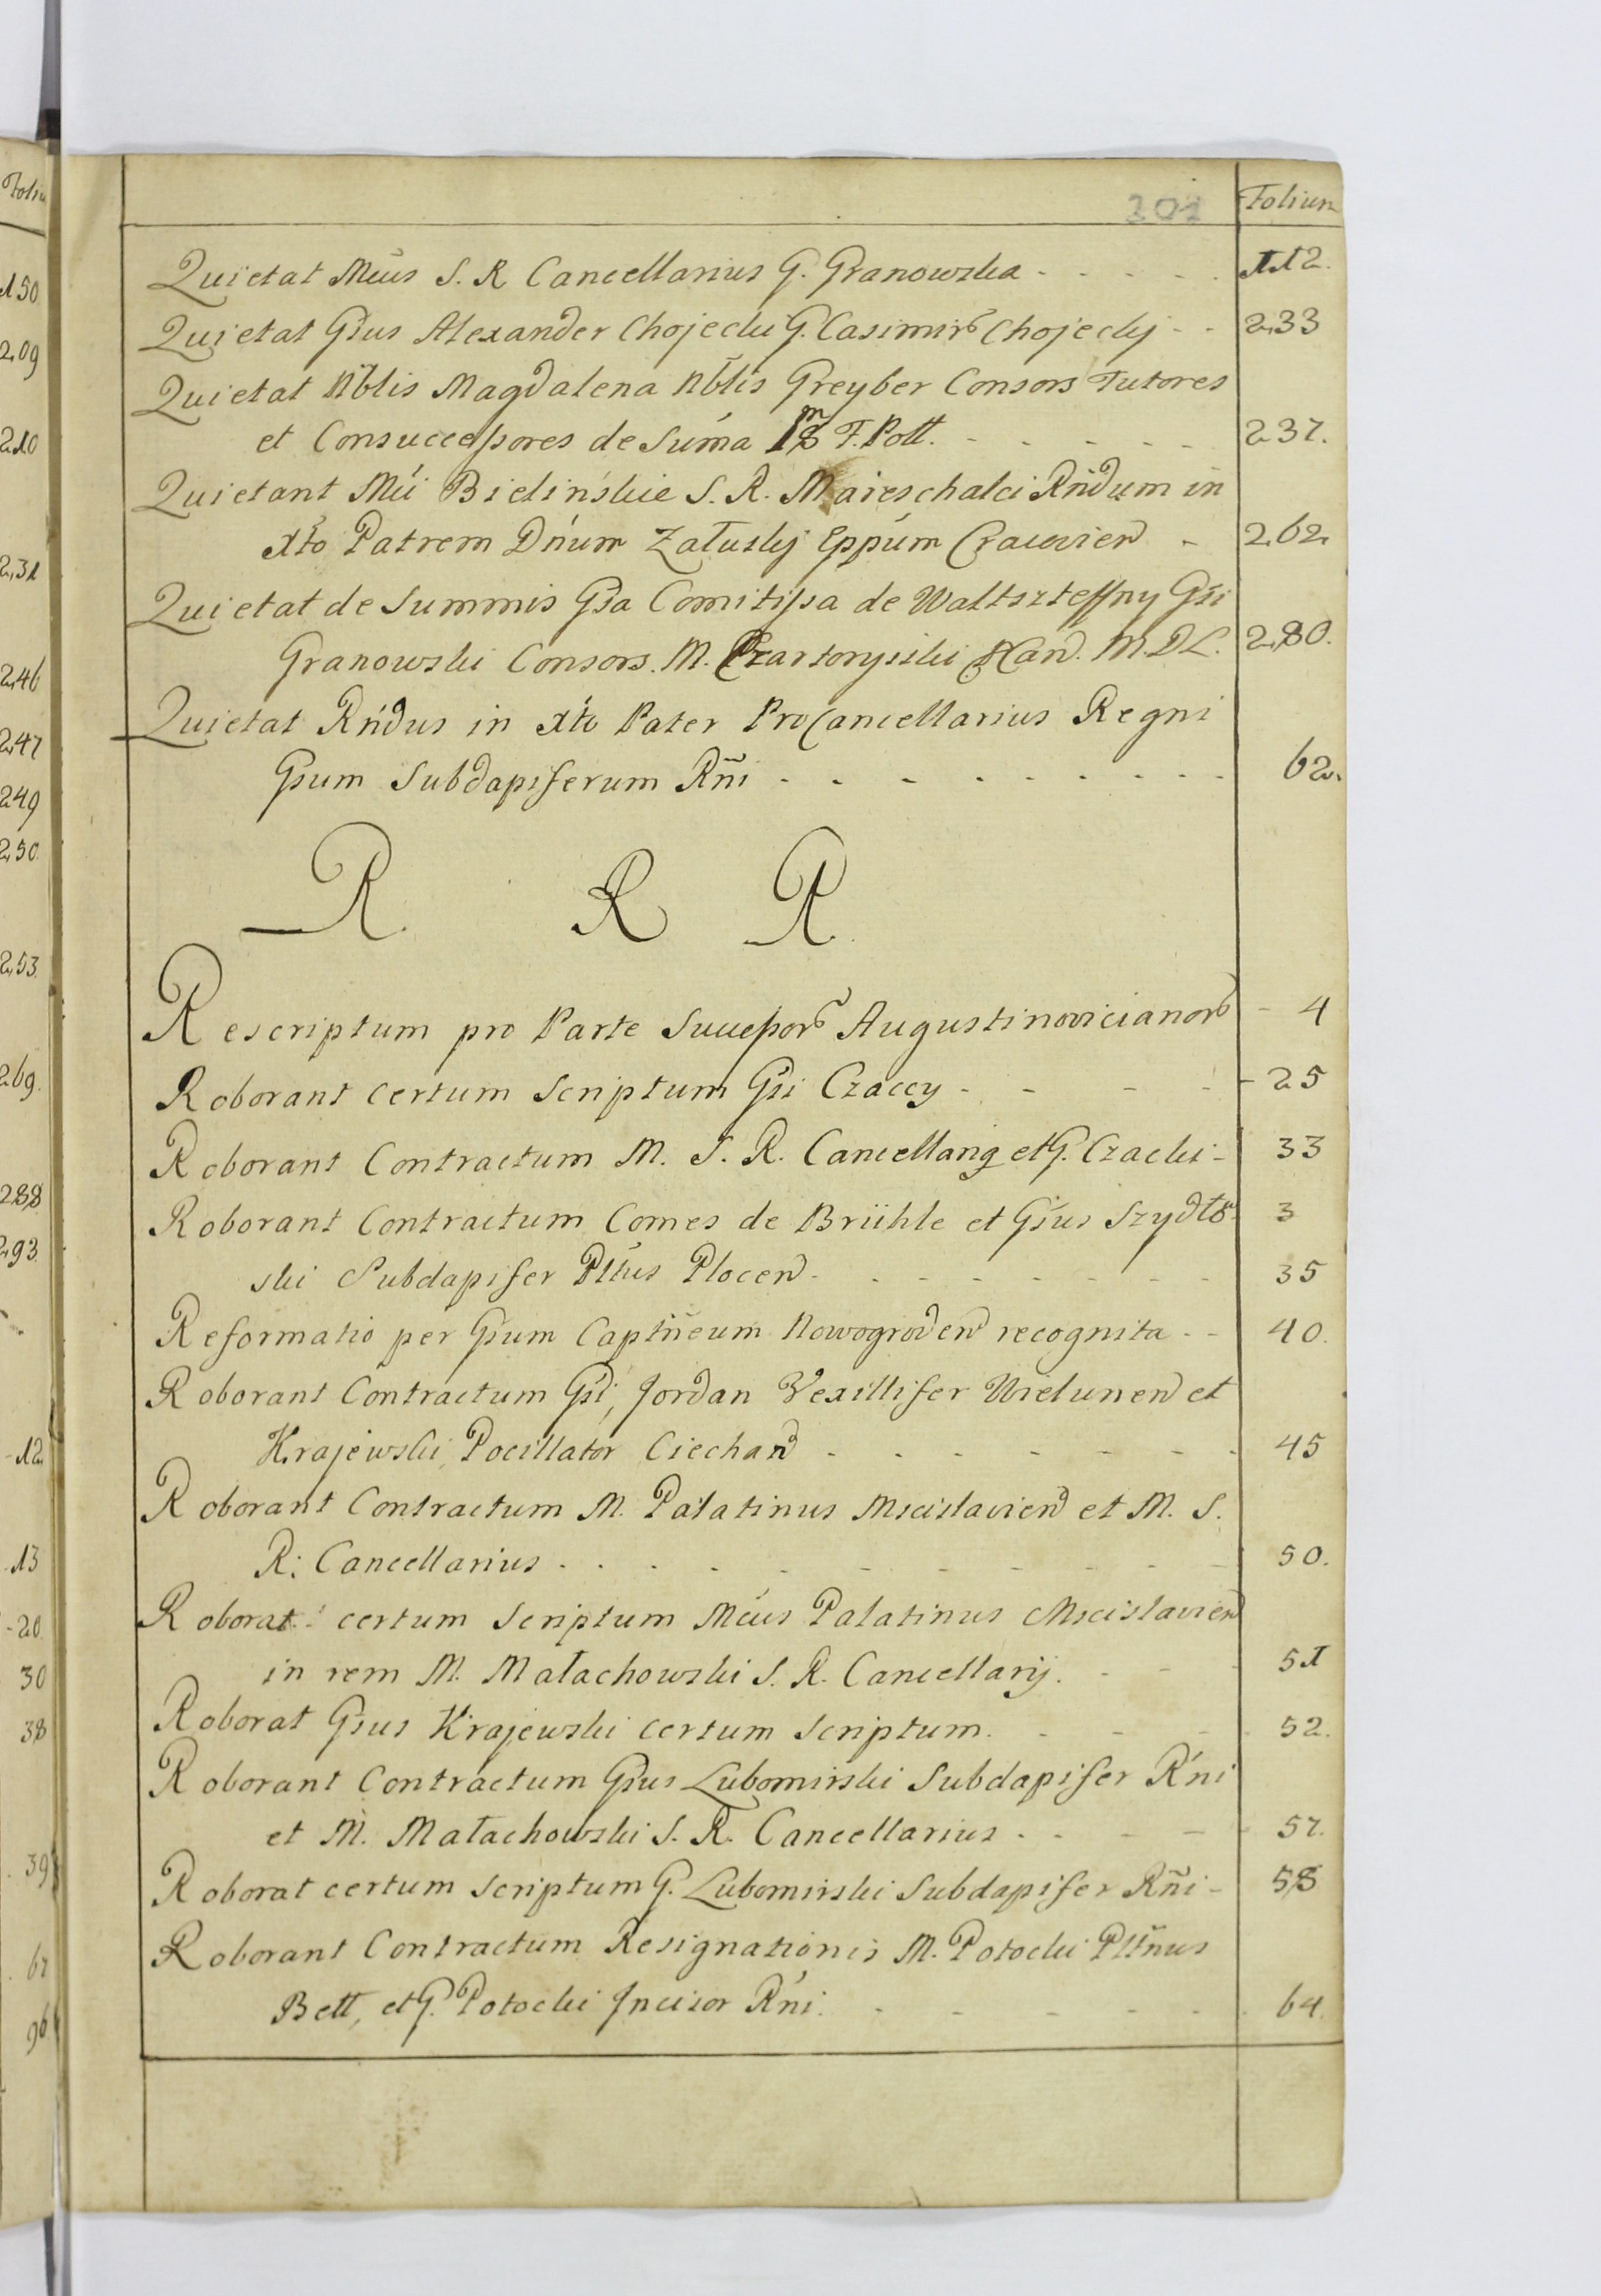 Folium
201
Quietat Mcus S. R Cancellarius G. Granowska - - - - - 112.
Quietat Gsus Alexander Chojecki G. Casimirũ Chojeckj - - 233
Quietat Nblis Magdalena Nblis Greyber Consors Tutores
et Consuccessores de Suma F. Poll. - - - - - 237.
Quietant Mci Bielińskie S. R. Mareschalci Rndum in
Xto Patrem Dnum Załuskj Eppum Cracovien - 262.
Quietat de Summis Gsa Comitissa de Waltszteffny Gsi
Granowski Consors. M. Czartoryiski Can. M. D L. 280.
Quietat Rndus in Xto Pater ProCancellarius Regni
Gsum Subdapiferum Rñi - - - - - - - - 62.
R R R
Rescriptum pro Parte Successorũ Augustinovicianorũ - 4
Roborant certum Scriptum Gsi Czaccy - - - - 25
Roborant Contractum M. S. R. Cancellarig et G. Czacki - 33
Roborant Contractum Comes de Brühle et Gsus Szydło 3
ski Subdapifer Pttus Plocen - - - - - - - 35
Reformatio per Gsum Captneum Nowogroden recognita - - 40.
Roborant Contractum Gsi, Jordan Vexillifer Wielunen et
Krajewski, Pocillator Ciechan - - - - - - - 45
Roborant Contractum M. Palatinus Mscislavien et M. S.
R: Cancellarius - - - - - - - - - 50.
Roborat certum Scriptum Mcus Palatinus Mscislavien
in rem M. Małachowski S. R. Cancellarij. - - - 51
Roborat Gsus Krajewski certum Scriptum. - - - - 52.
Roborant Contractum Gsus Lubomirski Subdapifer Rni
et M. Małachowski S. R. Cancellarius - - - - - 57.
Roborat certum Scriptum G. Lubomirski Subdapifer Rñi - 58
Roborant Contractum Resignationis M. Potocki Pltnus
Belt, et G. Potocki Incisor Rni. - - - - - - 64.
Foliu
150
209
210
231
246
247
249
250.
253.
269.
288
293
12
13
20.
30
38
39
67
96